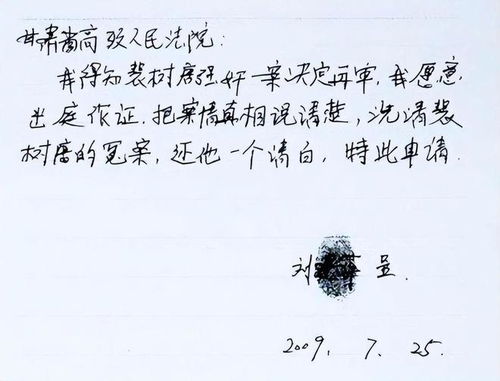 甘肃省高级人民法院:
我得知裴树唐强奸一案决定再审,我愿意
出庭作证.把案情真相说清楚,洗清裴
树唐的冤案,还他一个清白,特此申请.
刘 呈.
2009. 7. 25.